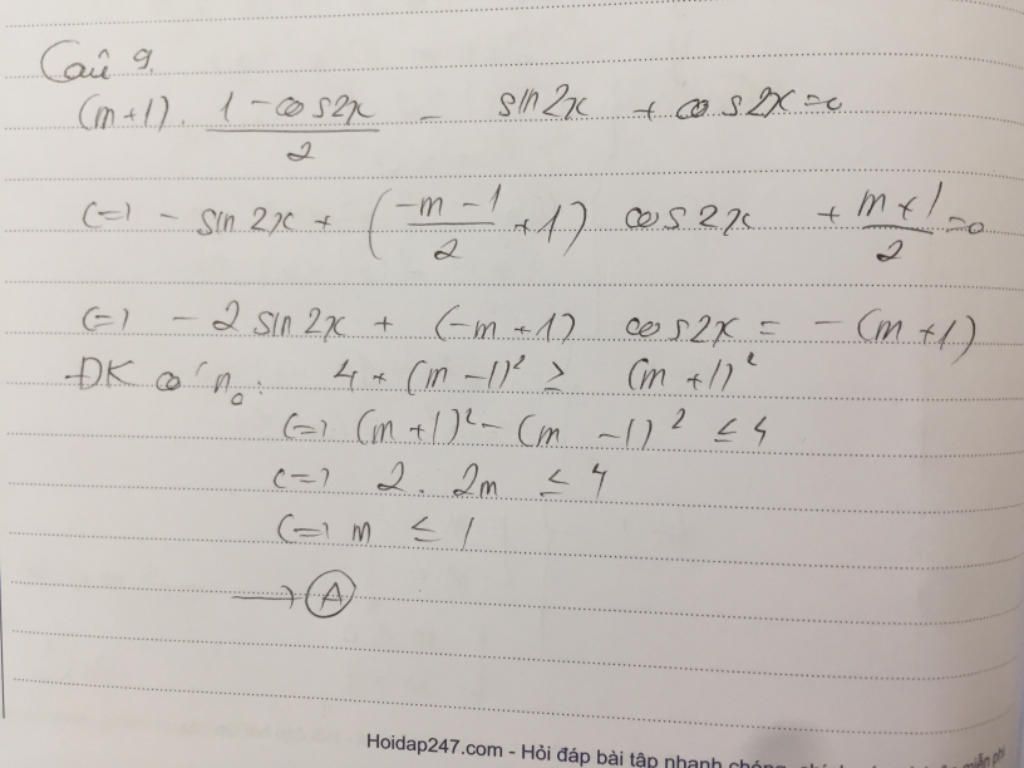 Câu 9.
(m+1). \frac{1 - cos2x}{2} - sin2x + cos2x = 0
(=) - sin2x + (\frac{-m-1}{2} + 1) cos2x + \frac{m+1}{2} = 0
(=) - 2 sin2x + (-m+1) cos2x = - (m+1)
ĐK có n₀: 4 + (m-1)² ≥ (m+1)²
(=) (m+1)² - (m-1)² ≤ 4
(=) 2. 2m ≤ 4
(=) m ≤ 1
→ A
Hoidap247.com - Hỏi đáp bài tập nhanh chóng, miễn phí